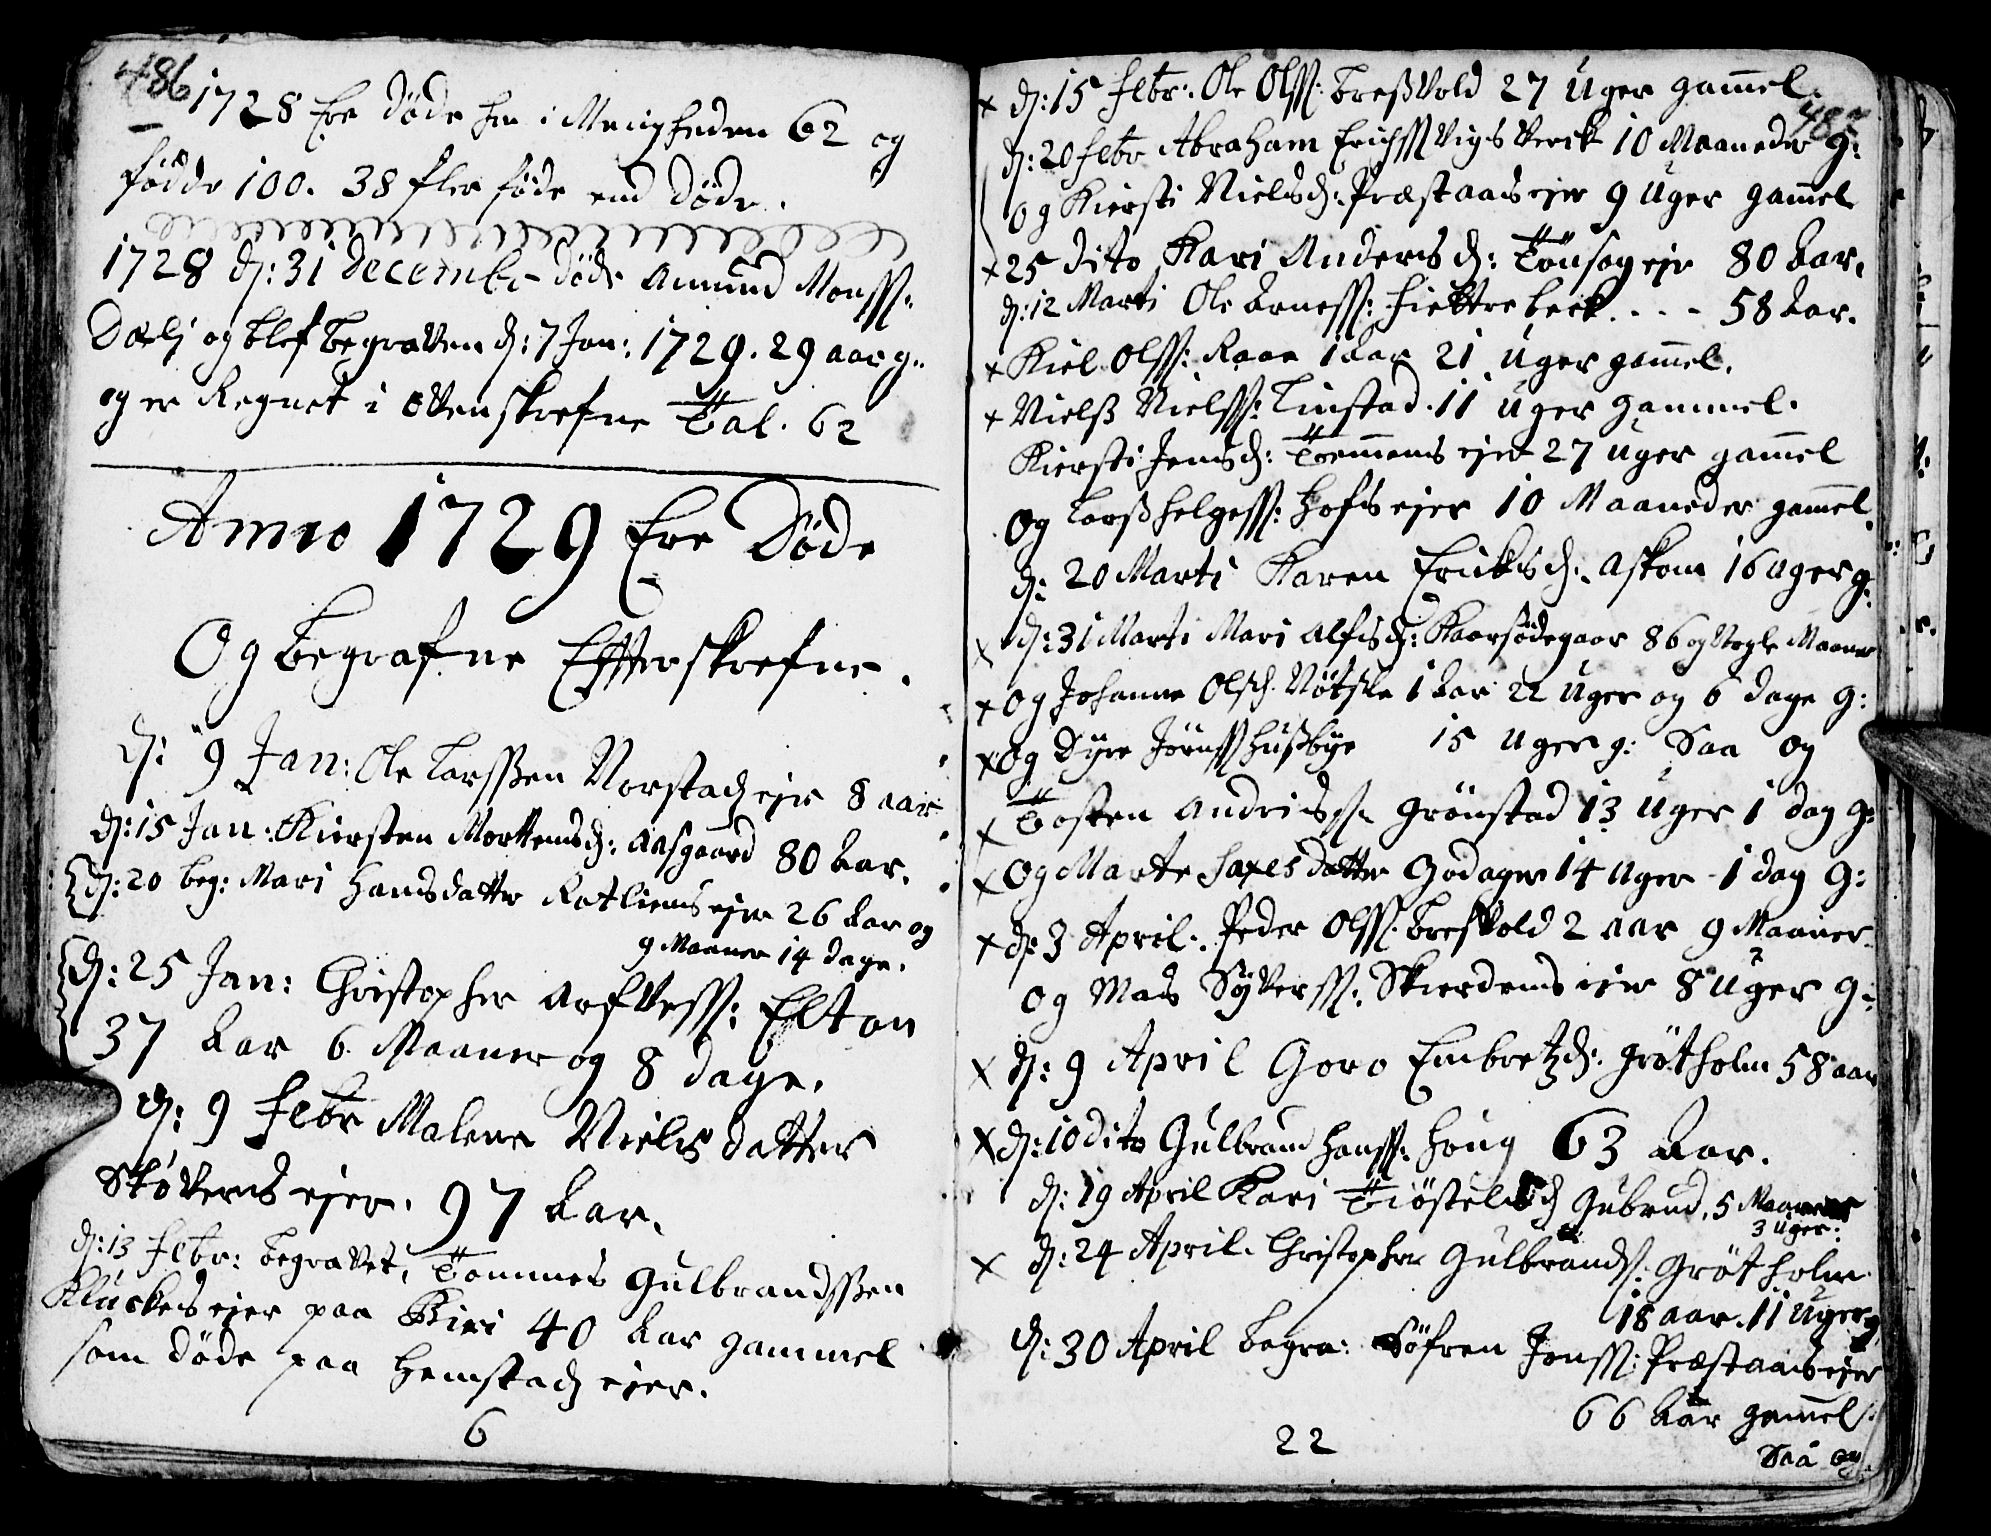 486
1728 Ere døde her i Menigheden 62 og
fødde 100. 38 fler føde end døde.
1728 d: 31 decembr døde Amund Monss:
Dæli og blef begraven d: 7 Jan: 1729. 29 aar g:
og er Regnet i ovenskrefne Tal. 62
Anno 1729 Ere Døde
Og begrafne Effterskrefne.
d: 9 Jan: Ole Larssen Norstad ejer 8 aar
d: 15 Jan: Kiersten Mortensd: Aasgaard 80 Aar.
d: 20 beg: Mari Hansdatter Rotliens ejer 26 Aar og
9 Maaner 14 dage.
d: 25 Jan: Christopher Arfvess: Elton
37 Aar 6 Maaner og 8 dage.
d: 9 Febr Malene Niels datter
Støvernes ejer. 97 Aar.
d: 13 Febr: begravet, Tommes Gulbrandssen
Kluckes ejer paa Biri 40 Aar gammel
som døde paa Hemstad ejer.
6
487
x d: 15 Febr: Ole Olss: bressvold 27 Uger gamel.
d: 20 Febr Abraham Erichss Vigs Verck 10 Maaneder g:
og Kiersti Nielsd: Præstaas ejer 9 Uger gamel
x 25 dito Kari Andersd: Tønsag ejr 80 Aar.
d: 12 Marti Ole Arness: Fiettre beck . . . - 58 Aar.
x Kiel Olss: Raae 1 Aar 21 Uger gamel.
x Nielss Nielss: Linstad. 11 Uger gammel.
Kiersti Jensd: Tommens ejer 27 Uger gamel
og Larss Helgess: Hofs ejer 10 Maaneder gamel.
d: 20 Marti Karen Ericksd: Askom 16 Uger g:
x d: 31 Marti Mari Alfsd: Kaarsødegaar 86 og Nogle Maaner
x og Johanne Olsd: Nøtsle 1 Aar 22 Uger og 6 dage g:
x og Dyre Jørnss Hussbye 15 Uger g: Saa og
x Tosten Andriss: Grønstad 13 Uger 1 dag g:
x Og Marte Saxes datter Godager 14 Uger 1 dag g:
x d: 3 April: Peder Olss: bressvold 2 aar 9 Maaner
og Mads Syverss: Skierdens ejer 8 Uger g:
x d: 9 April Goro Embretzd: Grøtholm 58 aar
x d: 10 dito Gulbrand Hanss: Houg 63 Aar.
d: 19 April Kari Tiøstelsd Gubrud, 5 Maaner
3 Uger:
x d: 24 April. Christopher Gulbrands: Grøtholm
18 aar. 11 Uger g
d: 30 April begra: Søfren Jonss: Præstaas ejer
66 Aar gamel:
22
Saa og